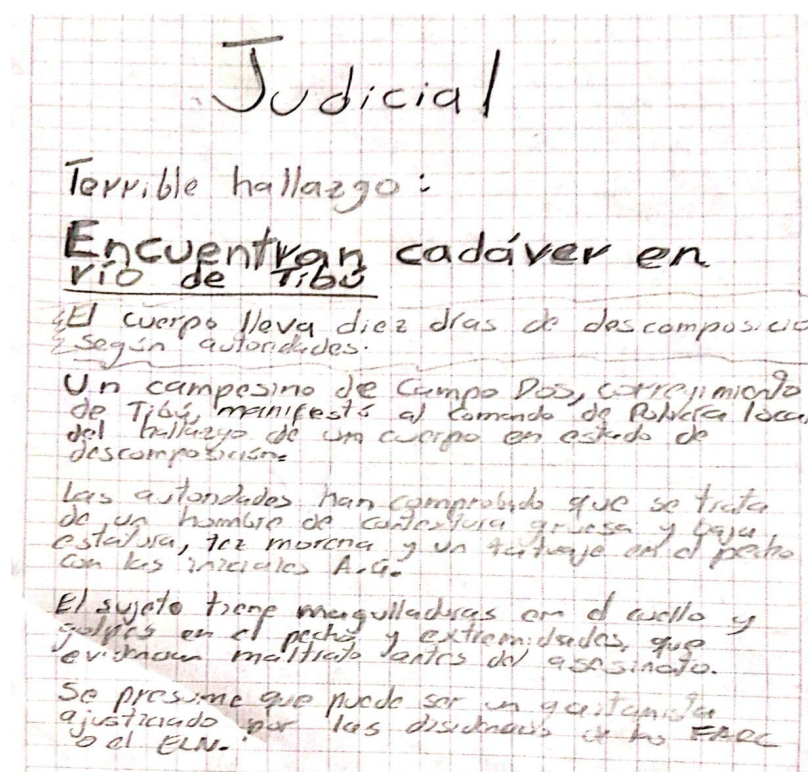 Judicial
Terrible hallazgo:
Encuentran cadáver en
río de Tibú
El cuerpo lleva diez días de descomposició
según autoridades.
Un campesino de Campo Dos, corregimiento
de Tibú, manifestó al comando de Policía local
del hallazgo de un cuerpo en estado de
descomposición.
Las autoridades han comprobado que se trata
de un hombre de contextura gruesa y baja
estatura, tez morena y un tatuaje en el pecho
con las iniciales A.G.
El sujeto tiene magulladuras en el cuello y
golpes en el pecho y extremidades, que
evidencian maltrato antes del asesinato.
Se presume que puede ser un gaitanista
ajusticiado por las disidencias de las FARC
o el ELN.